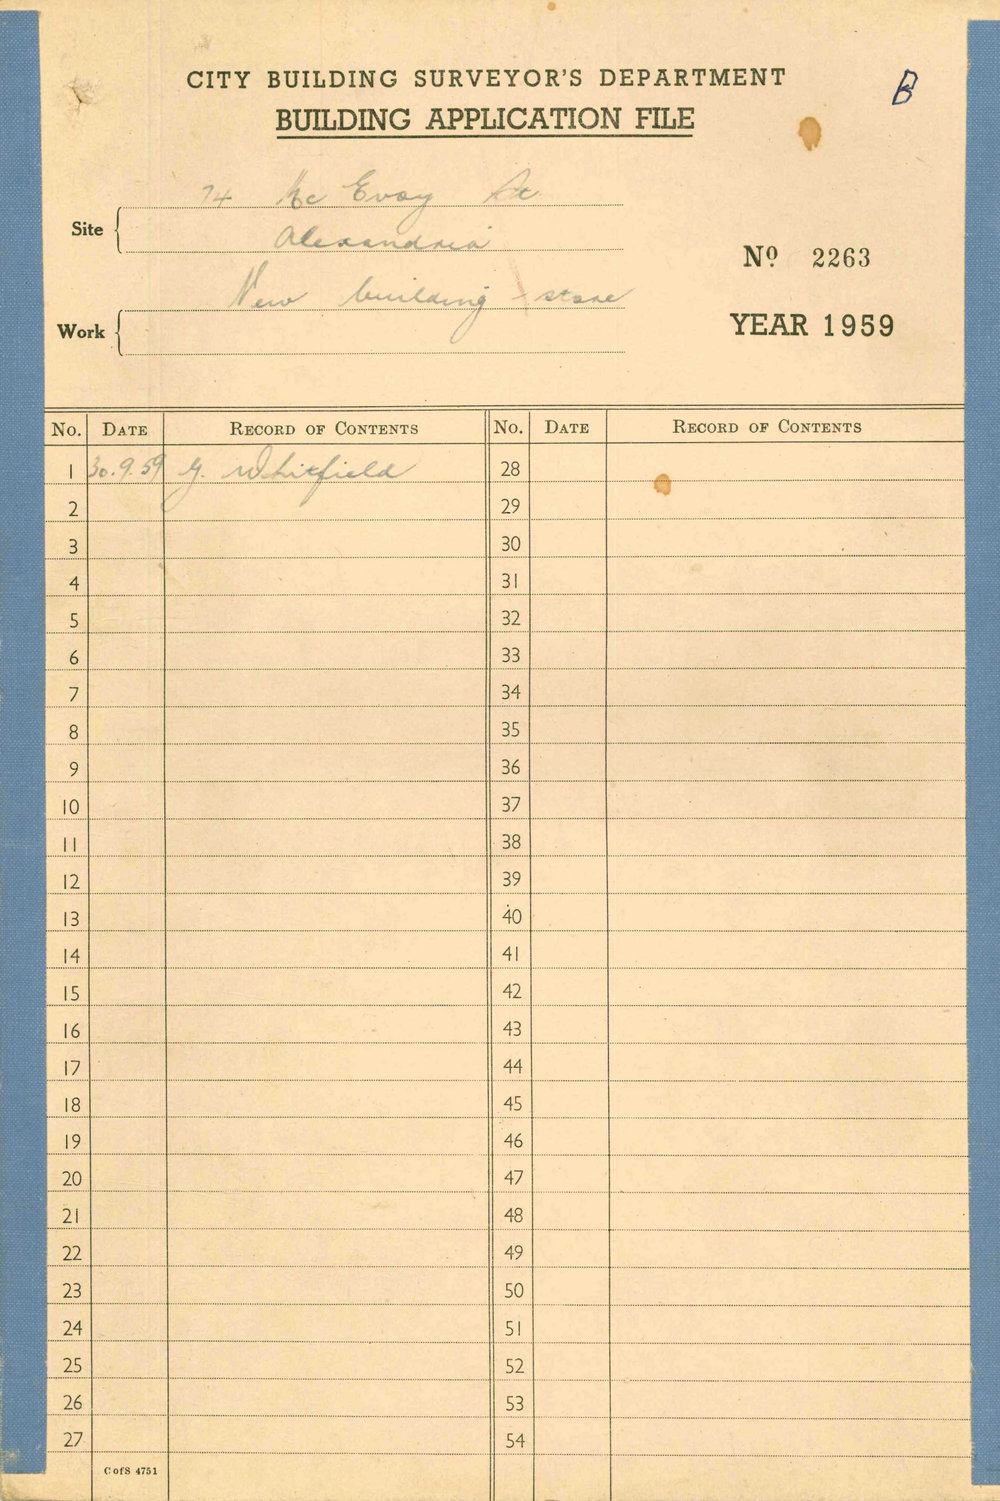 CITY BUILDING SURVEYOR'S DEPARTMENT
B
BUILDING APPLICATION FILE
Site
74 Mc Evoy St
Alexandria
Nº 2263
Work
New building - store
YEAR 1959
No. DATE RECORD OF CONTENTS No. DATE RECORD OF CONTENTS
1 30.9.59 G. Whitfield 28
2 29
3 30
4 31
5 32
6 33
7 34
8 35
9 36
10 37
11 38
12 39
13 40
14 41
15 42
16 43
17 44
18 45
19 46
20 47
21 48
22 49
23 50
24 51
25 52
26 53
27 54
C of S 4751